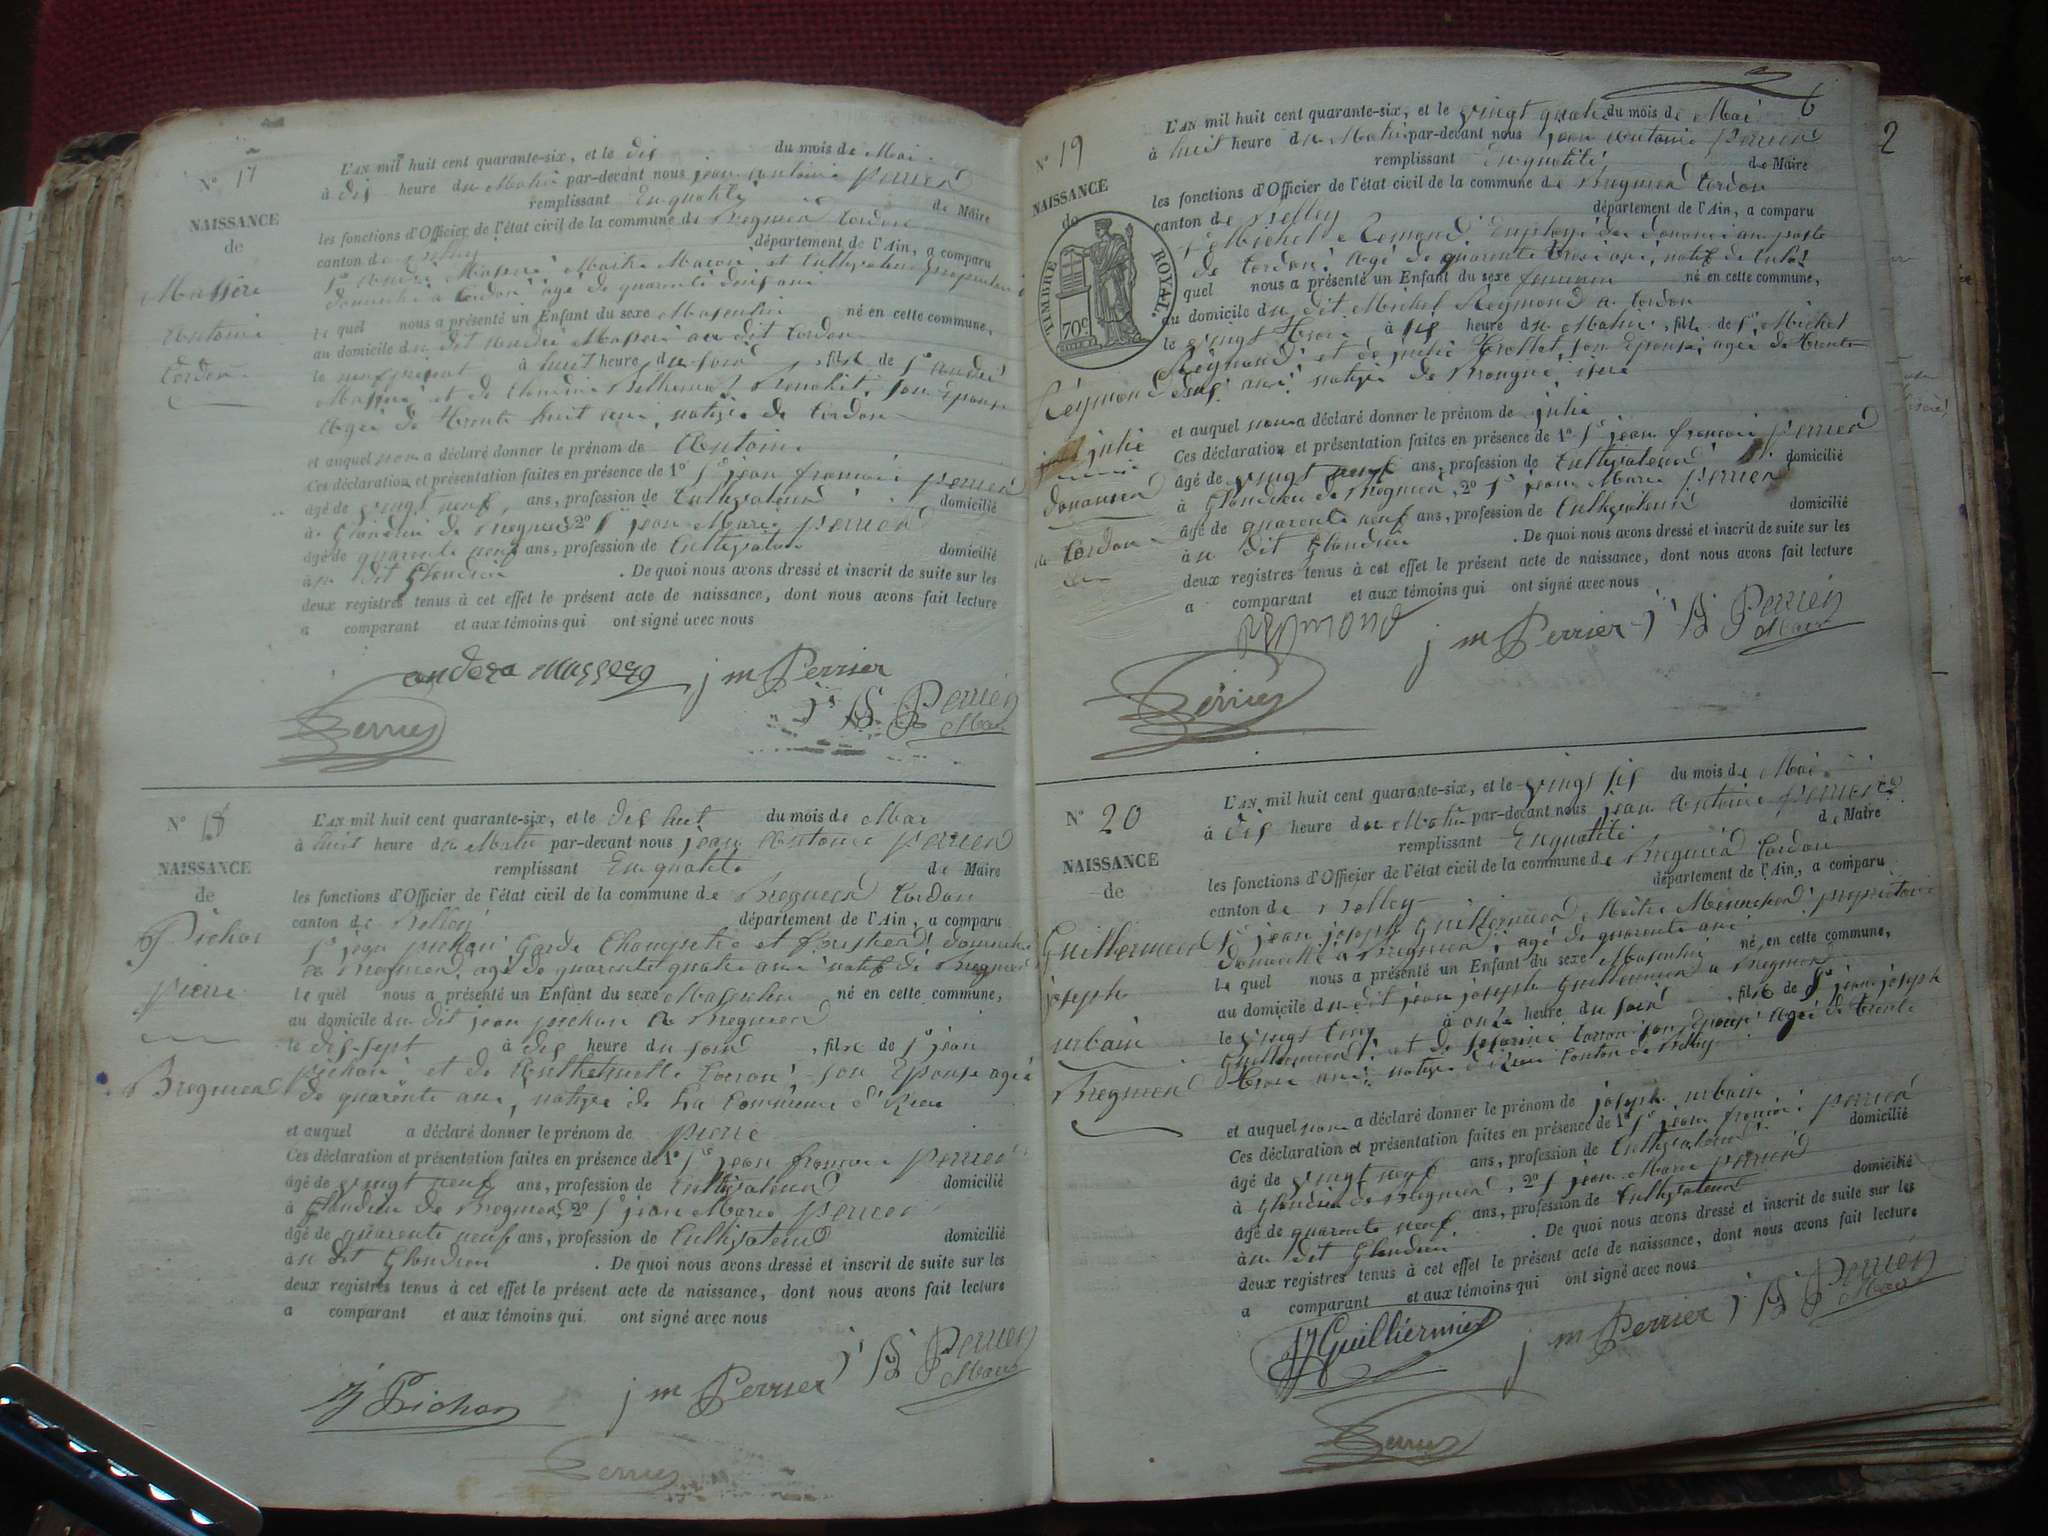 N° 17
NAISSANCE
de
Masseré
Antoine
Cordon
L'AN mil huit cent quarante-six, et le dix du mois de Mai
à dix heure du Matin par-devant nous jean antoine perrier
remplissant En qualité de Maire
les fonctions d'Officier de l'état civil de la commune de Bregnier Cordon
canton de Belley département de l'Ain, a comparu
Sr andré Maître Macon et Cultivateur
domicilié à Cordon agé de quarante ans
le quel nous a présenté un Enfant du sexe Masculin né en cette commune,
au domicile du dit andré au dit Cordon
le neuf à huit heure du soir, fils de Sr andré
et de son Epouse
Agée de trente huit ans, native de Cordon
et auquel nom a déclaré donner le prénom de Antoine
Ces déclaration et présentation faites en présence de 1° Sr jean francois perrier
âgé de vingt neuf ans, profession de Cultivateur domicilié
à Glandieu de Bregnier 2° Sr jean Marie perrier
âgé de quarente neuf ans, profession de Cultivateur domicilié
à u dit Glandieu. De quoi nous avons dressé et inscrit de suite sur les
deux registres tenus à cet effet le présent acte de naissance, dont nous avons fait lecture
a comparant et aux témoins qui ont signé avec nous
j m Perrier
Perrier
Maire
Perrier
N° 18
NAISSANCE
de
Pichon
pierre
Bregnier
L'AN mil huit cent quarante-six, et le dix huit du mois de Mai
à huit heure du Matin par-devant nous jean Antoine perrier
remplissant En qualité de Maire
les fonctions d'Officier de l'état civil de la commune de Bregnier Cordon
canton de Belley département de l'Ain, a comparu
Sr jean pichon Garde Champetre et forestier domicilié
à Bregnier agé de quarente quatre ans natif de Bregnier
le quel nous a présenté un Enfant du sexe Masculin né en cette commune,
au domicile du dit jean pichon à Bregnier
le dix-sept à dix heure du soir, fils de Sr jean
pichon et de son Epouse agée
de quarente ans, native de La Commune d'
et auquel a déclaré donner le prénom de pierre
Ces déclaration et présentation faites en présence de 1° Sr jean francois perrier
âgé de vingt neuf ans, profession de Cultivateur domicilié
à Glandieu de Bregnier, 2° Sr jean Marie perrier
âgé de quarente neuf ans, profession de Cultivateur domicilié
à u dit Glandieu. De quoi nous avons dressé et inscrit de suite sur les
deux registres tenus à cet effet le présent acte de naissance, dont nous avons fait lecture
a comparant et aux témoins qui ont signé avec nous
j Pichon
j m Perrier
Perrier
Maire
Perrier
6
N° 19
NAISSANCE
de
TIMBRE ROYAL.
70c
Réymond
julie
douanier
Cordon
L'AN mil huit cent quarante-six, et le vingt quatre du mois de Mai
à huit heure du Matin par-devant nous jean antoine perrier
remplissant En qualité de Maire
les fonctions d'Officier de l'état civil de la commune de Bregnier Cordon
canton de Belley département de l'Ain, a comparu
Sr Michel Remond Employé des douanes au poste
de Cordon Agé de quarente trois ans, natif de
quel nous a présenté un Enfant du sexe feminin né en cette commune,
au domicile du dit Michel Reymond à Cordon
le vingt trois à six heure du Matin, fille de Sr Michel
Reymond et de julie son Epouse, agée de trente
ans native de isere
et auquel nom a déclaré donner le prénom de julie
Ces déclaration et présentation faites en présence de 1° Sr jean francois perrier
âgé de vingt neuf ans, profession de Cultivateur domicilié
à Glandieu de Bregnier, 2° Sr jean Marie perrier
âgé de quarente neuf ans, profession de Cultivateur domicilié
à u dit Glandieu. De quoi nous avons dressé et inscrit de suite sur les
deux registres tenus à cet effet le présent acte de naissance, dont nous avons fait lecture
a comparant et aux témoins qui ont signé avec nous
Reymond
j m Perrier
Perrier
Maire
Perrier
N° 20
NAISSANCE
de
Guillermier
joseph
urbain
Bregnier
L'AN mil huit cent quarante-six, et le vingt six du mois de Mai
à dix heure du Matin par-devant nous jean Antoine perrier
remplissant En qualité de Maire
les fonctions d'Officier de l'état civil de la commune de Bregnier Cordon
canton de Belley département de l'Ain, a comparu
Sr jean joseph Guillermier Maître propriétaire
domicilié à Bregnier, agé de quarente ans
le quel nous a présenté un Enfant du sexe Masculin né en cette commune,
au domicile du dit jean joseph Guillermier à Bregnier
le vingt cinq à onze heure du soir, fils de Sr jean joseph
Guillermier et de son Epouse Agée de trente
trois ans native Canton de Belley
et auquel nom a déclaré donner le prénom de joseph urbain
Ces déclaration et présentation faites en présence de 1° Sr jean francois perrier
âgé de vingt neuf ans, profession de Cultivateur domicilié
à Glandieu de Bregnier, 2° Sr jean Marie perrier
âgé de quarente neuf ans, profession de Cultivateur domicilié
à u dit Glandieu. De quoi nous avons dressé et inscrit de suite sur les
deux registres tenus à cet effet le présent acte de naissance, dont nous avons fait lecture
a comparant et aux témoins qui ont signé avec nous
JJ Guilliermier
j m Perrier
Perrier
Maire
Perrier
2